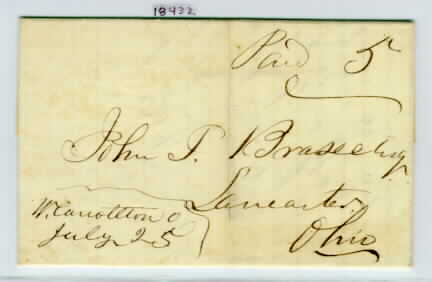 18432
Paid 5
John T. Brasee Esq
Lancaster
W. Carrollton O
July 25
Ohio